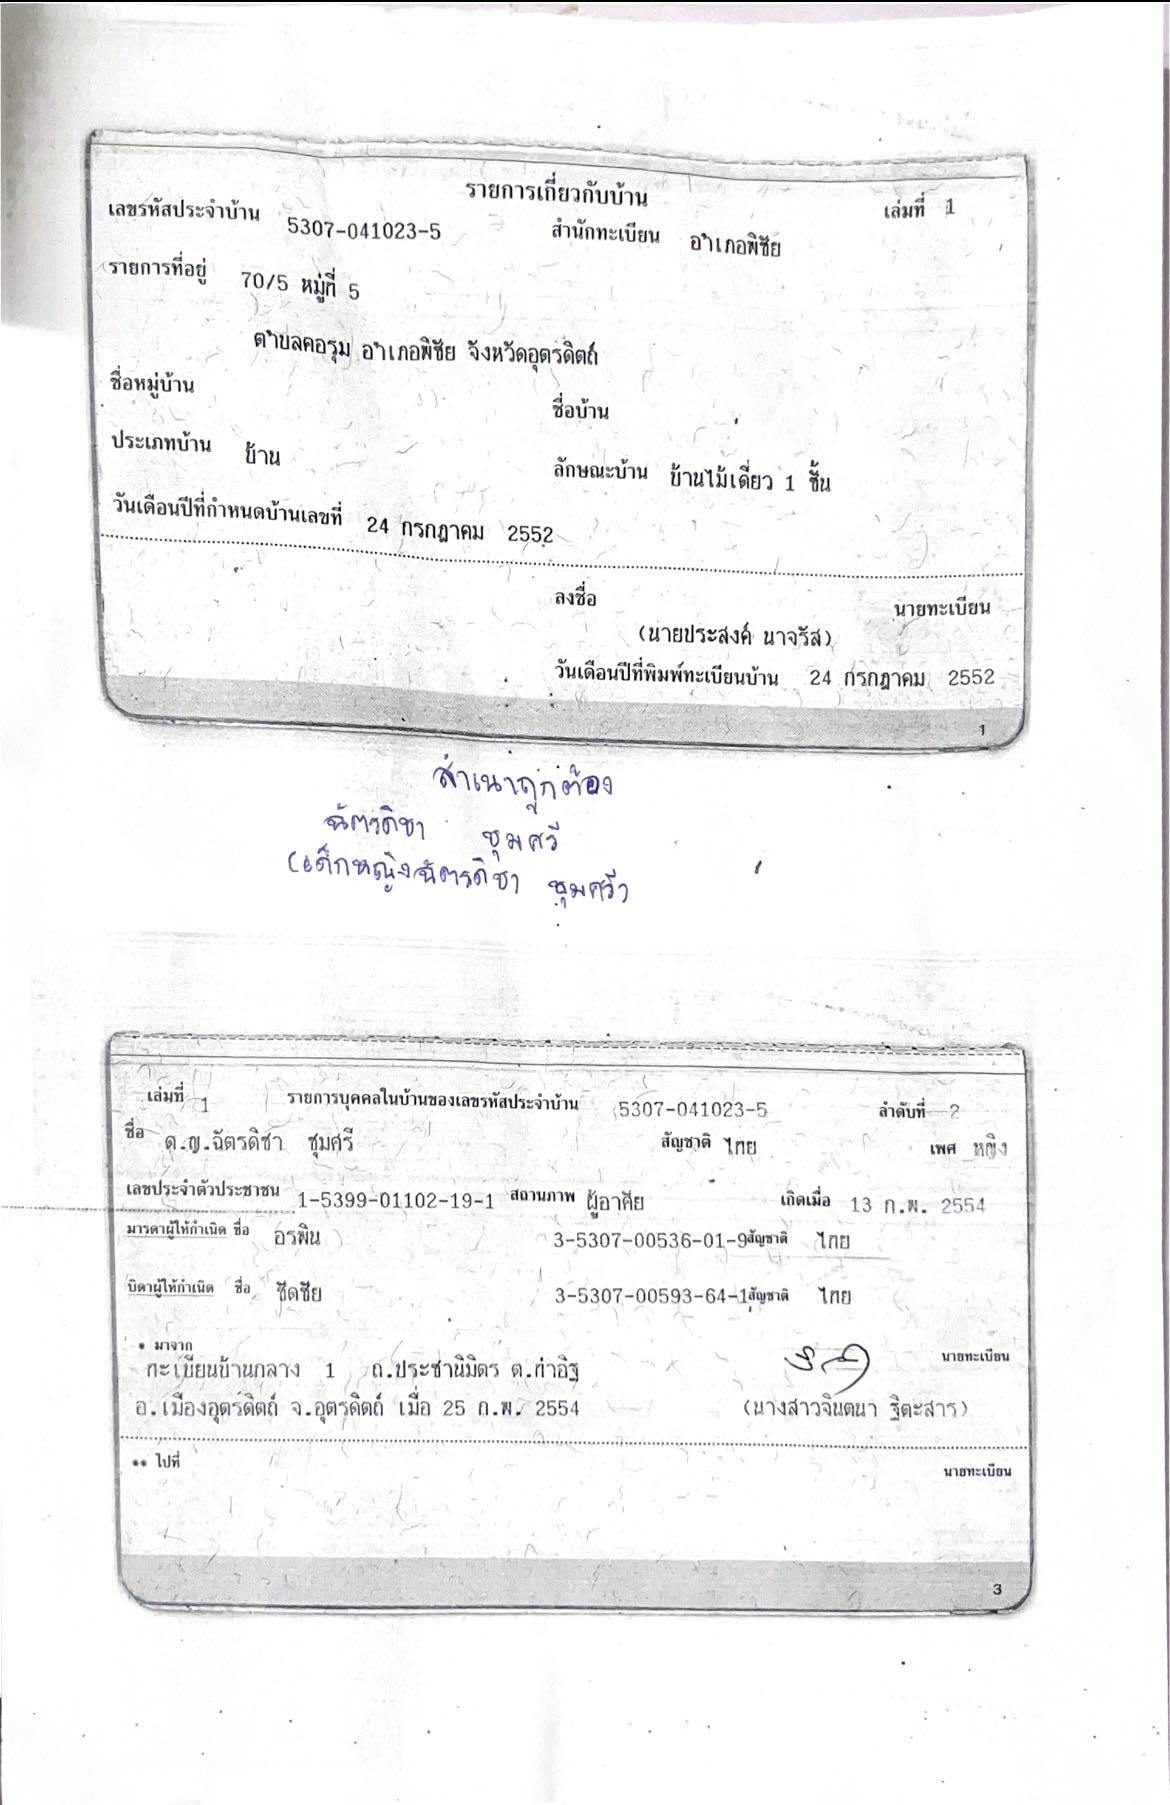 รายการเกี่ยวกับบ้าน เล่มที่ 1
เลขรหัสประจำบ้าน 5307-041023-5 สำนักทะเบียน อำเภอพิชัย
รายการที่อยู่ 70/5 หมู่ที่ 5
ตำบลคอรุม อำเภอพิชัย จังหวัดอุตรดิตถ์
ชื่อหมู่บ้าน ชื่อบ้าน
ประเภทบ้าน บ้าน ลักษณะบ้าน บ้านไม้เดี่ยว 1 ชั้น
วันเดือนปีที่กำหนดบ้านเลขที่ 24 กรกฎาคม 2552
ลงชื่อ นายทะเบียน
(นายประสงค์ นาจรัส)
วันเดือนปีที่พิมพ์ทะเบียนบ้าน 24 กรกฎาคม 2552
1
สำเนาถูกต้อง
ฉัตรดิชา ชุมศรี
(เด็กหญิงฉัตรดิชา ชุมศรี)
เล่มที่ 1 รายการบุคคลในบ้านของเลขรหัสประจำบ้าน 5307-041023-5 ลำดับที่ 2
ชื่อ ด.ญ.ฉัตรดิชา ชุมศรี สัญชาติ ไทย เพศ หญิง
เลขประจำตัวประชาชน 1-5399-01102-19-1 สถานภาพ ผู้อาศัย เกิดเมื่อ 13 ก.พ. 2554
มารดาผู้ให้กำเนิด ชื่อ อรพิน 3-5307-00536-01-9 สัญชาติ ไทย
บิดาผู้ให้กำเนิด ชื่อ ชิดชัย 3-5307-00593-64-1 สัญชาติ ไทย
* มาจาก นายทะเบียน
ทะเบียนบ้านกลาง 1 ถ.ประชานิมิตร ต.ท่าอิฐ
อ.เมืองอุตรดิตถ์ จ.อุตรดิตถ์ เมื่อ 25 ก.พ. 2554 (นางสาวจินตนา ฐิตะสาร)
** ไปที่ นายทะเบียน
3